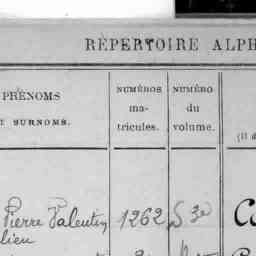 RÉPERTOIRE ALPH
PRÉNOMS
T SURNOMS.
NUMÉROS
ma-
tricules.
NUMÉRO
du
volume.
(Il d
Pierre Valentin 1262 S 3e
lieu